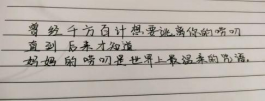 曾经千方百计想要逃离你的唠叨
直到后来才知道
妈妈的唠叨是世界上最温柔的咒语。